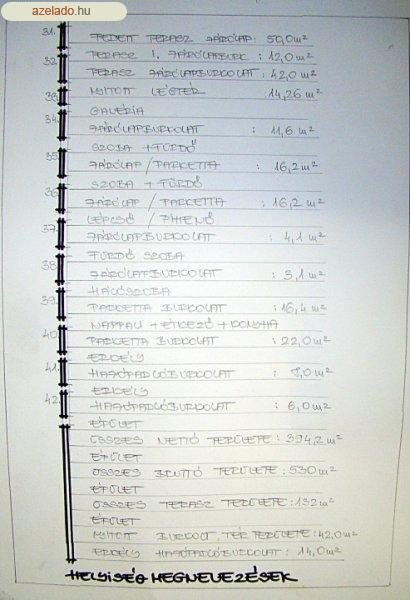 azelado.hu
31. FEDETT TERASZ JÁRÓLAP: 50,0 m²
32. TERASZ I. JÁRÓLAPBURK: 12,0 m²
TERASZ JÁRÓLAPBURKOLAT: 42,0 m²
33. NYITOTT LÉGTÉR 14,26 m²
34. GALÉRIA
JÁRÓLAPBURKOLAT : 11,6 m²
SZOBA + FÜRDŐ
35. JÁRÓLAP / PARKETTA : 16,2 m²
SZOBA + FÜRDŐ
36. JÁRÓLAP / PARKETTA : 16,2 m²
LÉPCSŐ / PIHENŐ
37. JÁRÓLAPBURKOLAT : 4,1 m²
FÜRDŐ SZOBA
38. JÁRÓLAPBURKOLAT : 5,1 m²
HÁLÓSZOBA
39. PARKETTA BURKOLAT : 16,4 m²
NAPPALI + ÉTKEZŐ + KONYHA
40. PARKETTA BURKOLAT : 22,0 m²
ERKÉLY
41. HAJÓPADLÓBURKOLAT : m²
ERKÉLY
42. HAJÓPADLÓBURKOLAT : 6,0 m²
ÉPÜLET
ÖSSZES NETTÓ TERÜLETE: 394,2 m²
ÉPÜLET
ÖSSZES BRUTTÓ TERÜLETE: 530 m²
ÉPÜLET
ÖSSZES TERASZ TERÜLETE: 132 m²
ÉPÜLET
NYITOTT BURKOLT. TÉR TERÜLETE: 42,0 m²
ERKÉLY HAJÓPADLÓBURKOLAT : 14,0 m²
HELYISÉG MEGNEVEZÉSEK